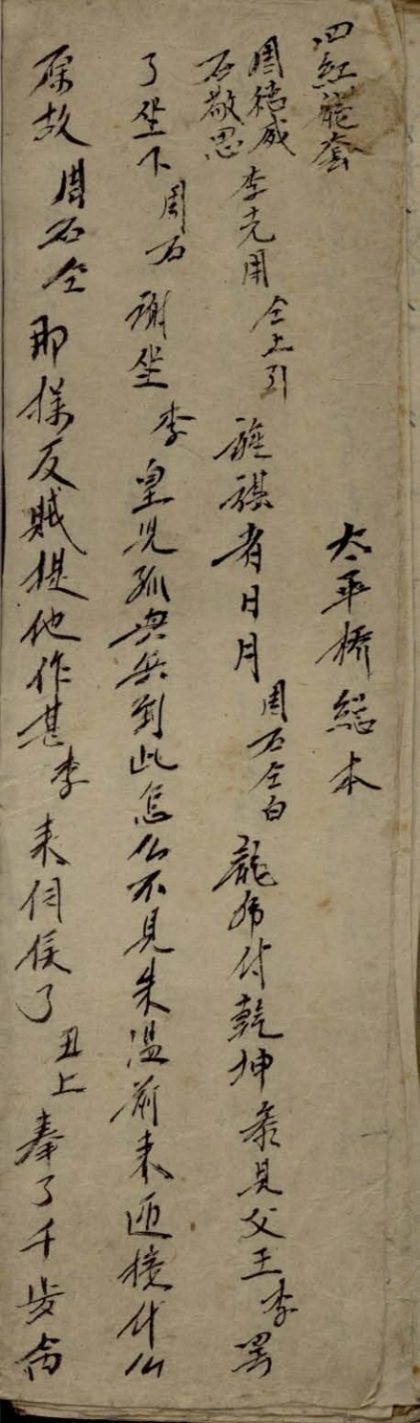 太平橋総本
四紅龍套
周德威 石敬思 李克用 仝上引 旌旗者日月 周石仝白 龍虎付乾坤 叅見父王 李 罢
了坐下 周石 謝坐 李 皇兒孤與兵到此怎仫不見朱溫前来迎接什仫
原故 周石仝 那樣反賊提他作甚 李 来伺侯了 丑上 奉了千歩命